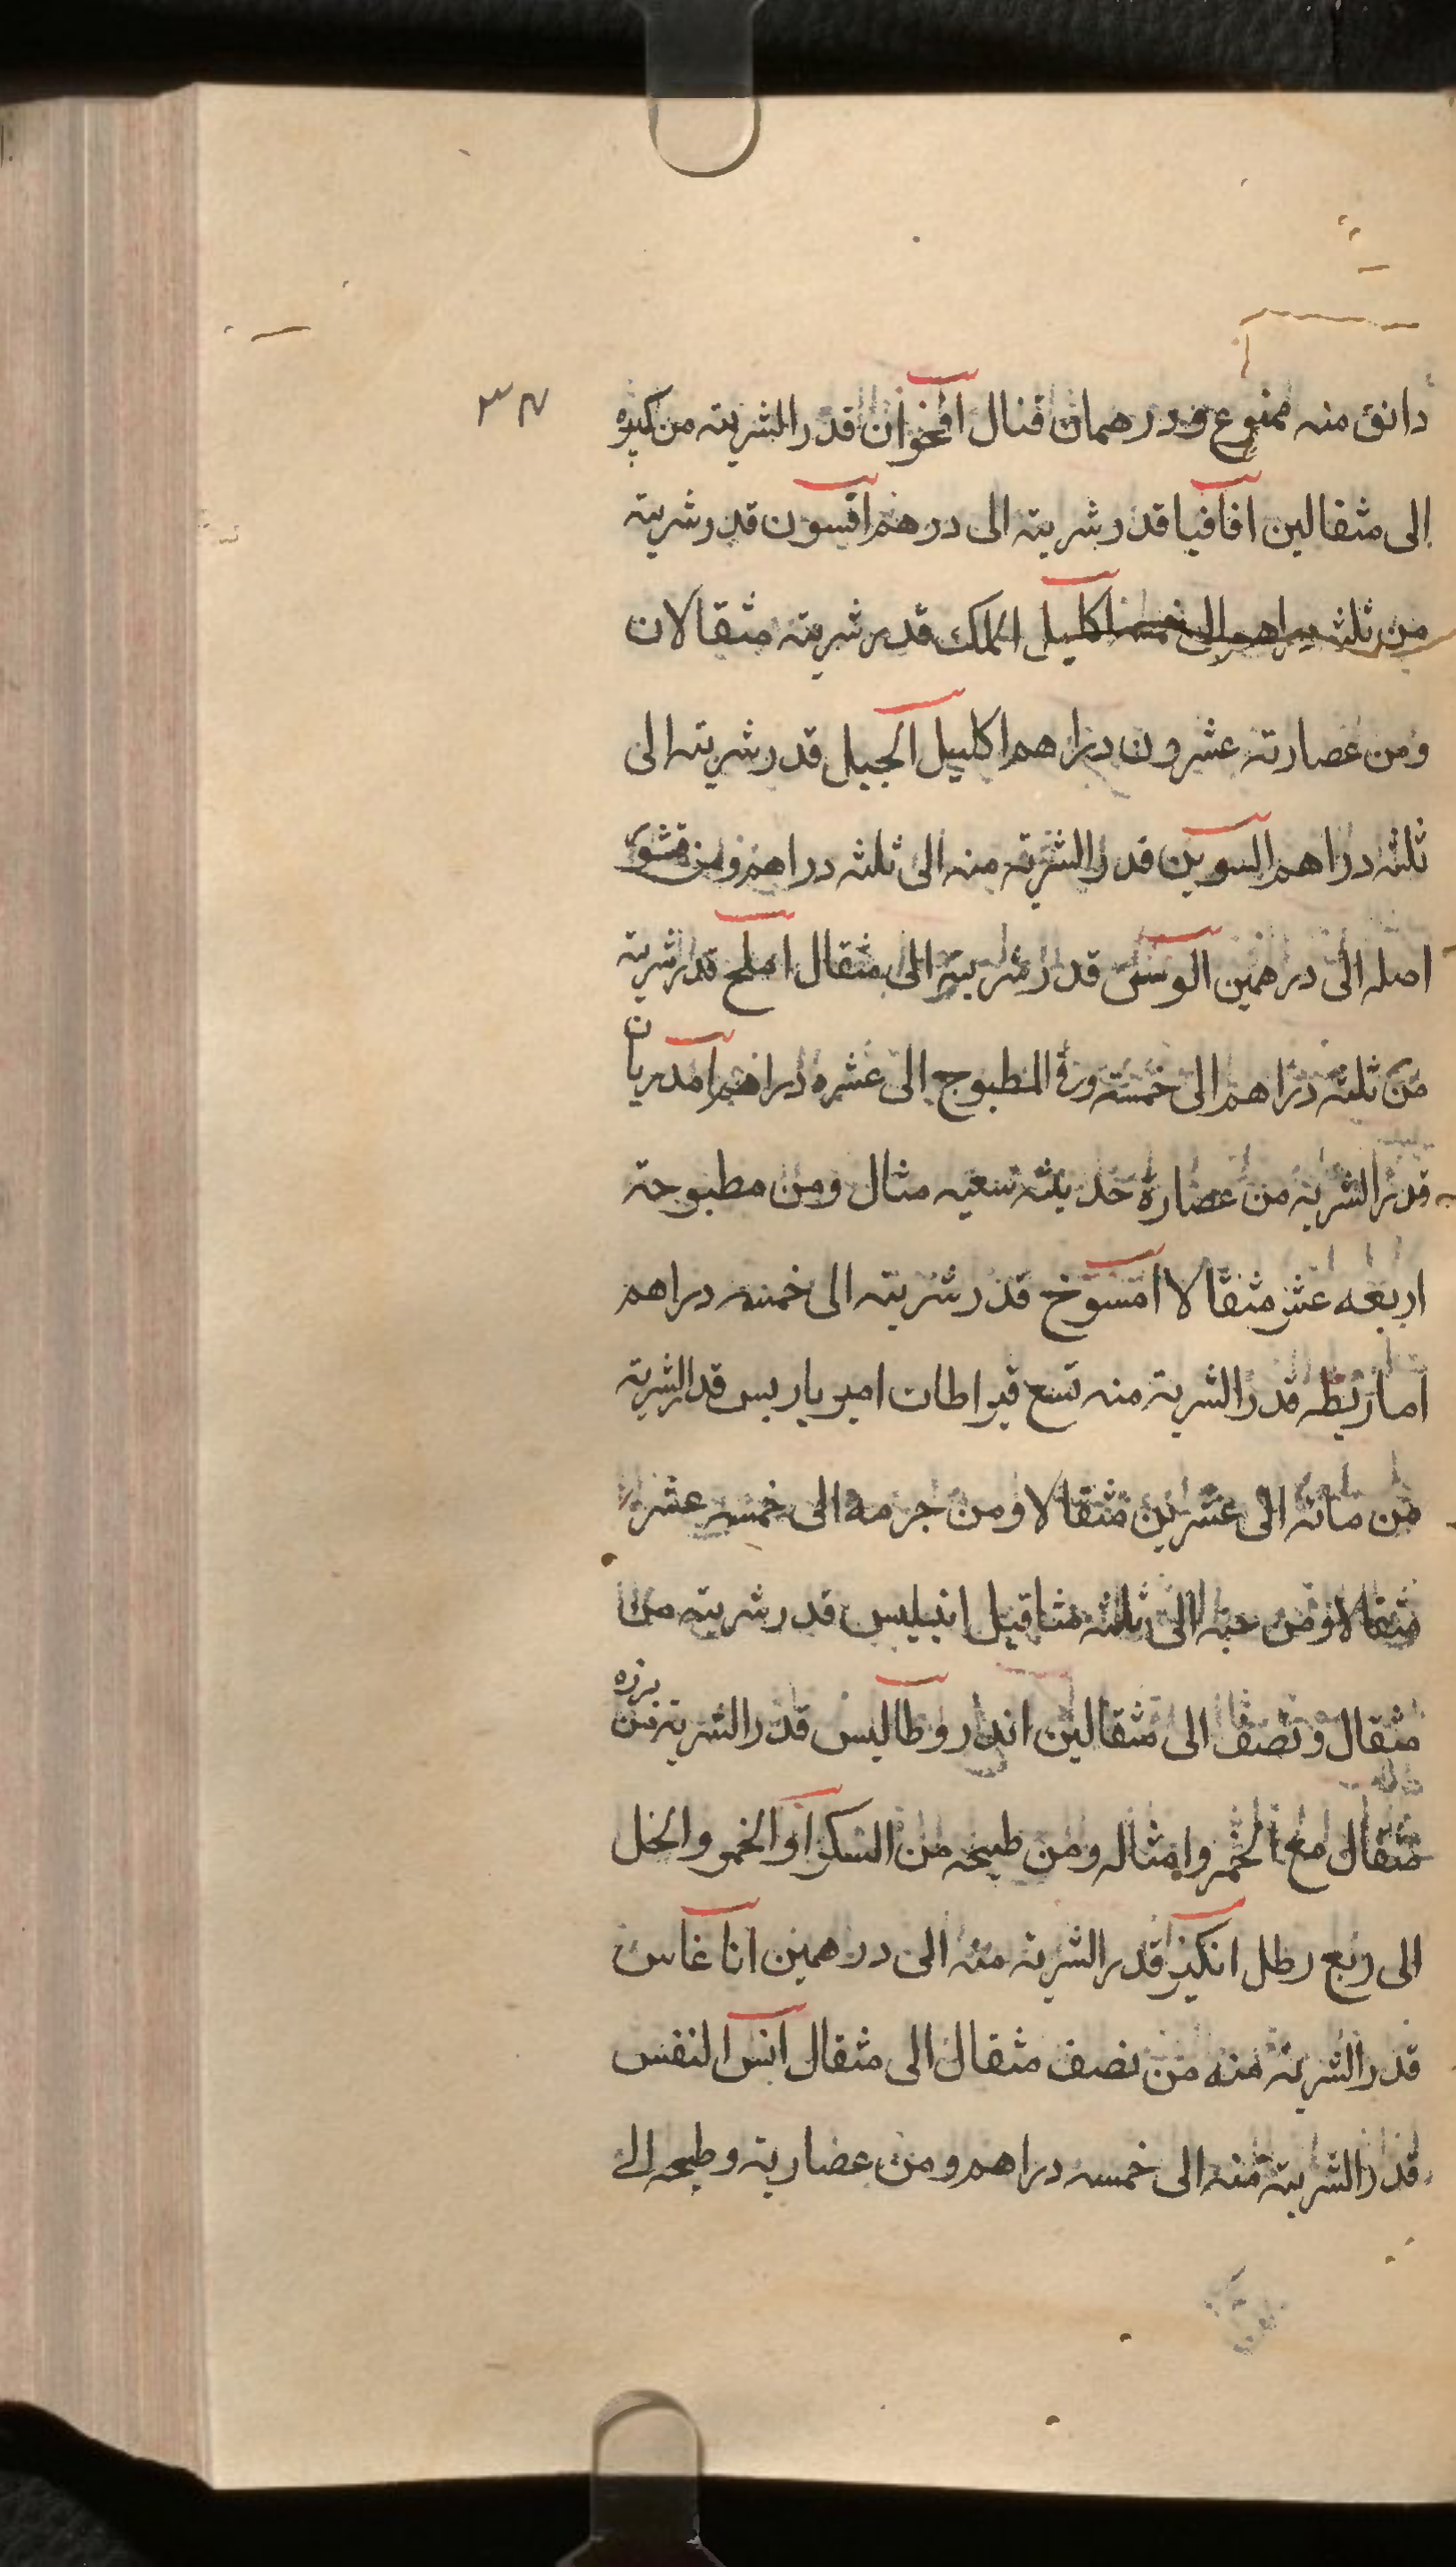 ٣٧
دانق منه ممنوع ودرهمان قتال اقحوان قدر الشربته من كبيره
الى مثقالين اقاقيا قدر شربته الى درهم اقسون قدر شربته
من ثلثه دراهم الى خمسه اكليل الملك قدر شربته مثقالان
ومن عصارته عشرون دراهم اكليل الجبل قدر شربته الى
ثلثه دراهم السوين قدر الشربته منه الى ثلثه دراهم ومن قشور
اصله الى درهمين الوسن قدر شربته الى مثقال املج قدر شربته
من ثلثه دراهم الى خمسته وفى المطبوج الى عشره دراهم امدريان
قدر الشربه من عصارة حديثه تسعيه مثال ومن مطبوحته
اربعه عشر مثقالا امسوخ قدر شربته الى خمسه دراهم
امارنطه قدر الشربته منه تسع قيراطات اميرباريس قدر الشربته
من مائه الى عشرين مثقالا ومن جرمه الى خمسه عشر
مثقالا ومن حبه الى ثلثه مثاقيل انبليس قدر شربته من
مثقال ونصف الى مثقالين اندروطاليس قدر الشربته من بزره
مثقال مع الخمر وامثاله ومن طبيخه من السكر او الخمر والخل
الى ربع رطل انكيز قدر الشربته منه الى درهمين اناغاس
قدر الشربته منه من نصف مثقال الى مثقال انس النفس
قدر الشربته منه الى خمسه دراهم ومن عضاريته وطبحه الى